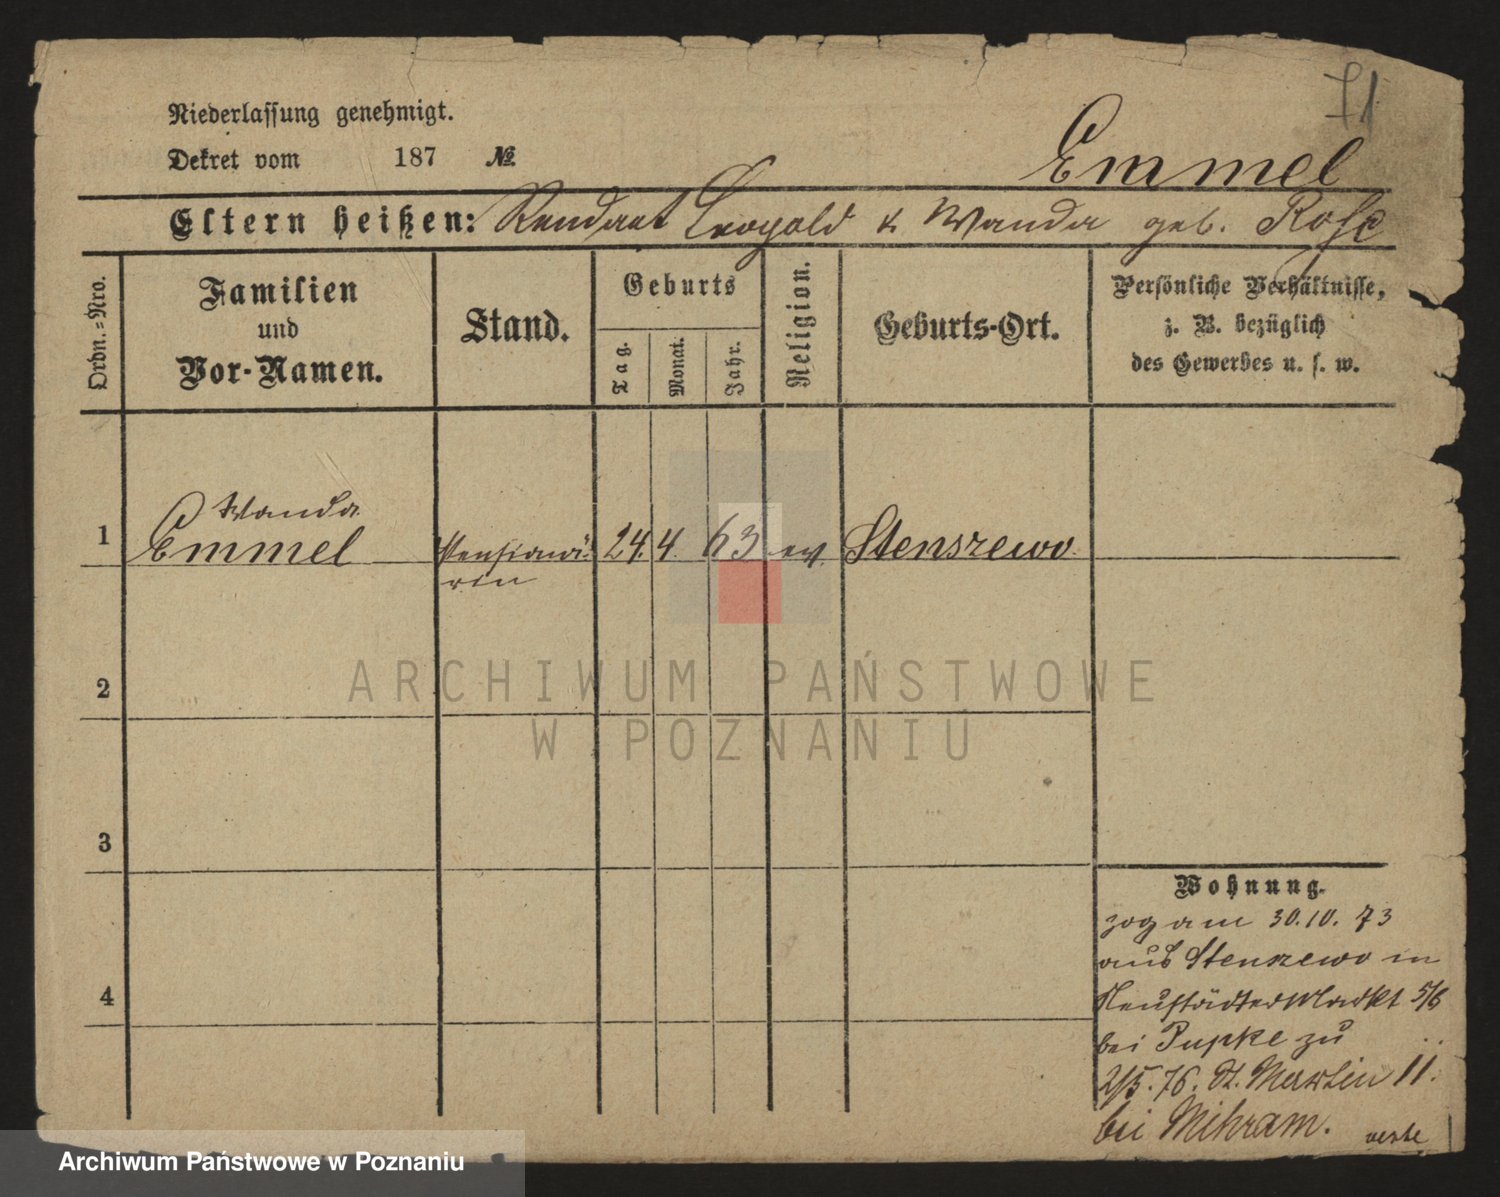 71
Niederlassung genehmigt.
Dekret vom 187 №
Emmel
Eltern heißen: Rendant Leopold & Wanda geb. Rose
Ordn.=Nro.
Familien
und
Vor-Namen.
Stand.
Geburts
Tag.
Monat.
Jahr.
Religion.
Geburts-Ort.
Persönliche Verhältnisse,
z. B. bezüglich
des Gewerbes u. s. w.
Wanda
1 Emmel Pensionä- 24. 4. 63 ev. Stenszewo
rin
2
3
4
Wohnung.
zog am 30.10.73
aus Stenszewo in
Neustädter Markt 5/6
bei Pupke zu
2/5.76. St. Martin 11.
bei Mihram.
ARCHIWUM PAŃSTWOWE
W POZNANIU
Archiwum Państwowe w Poznaniu